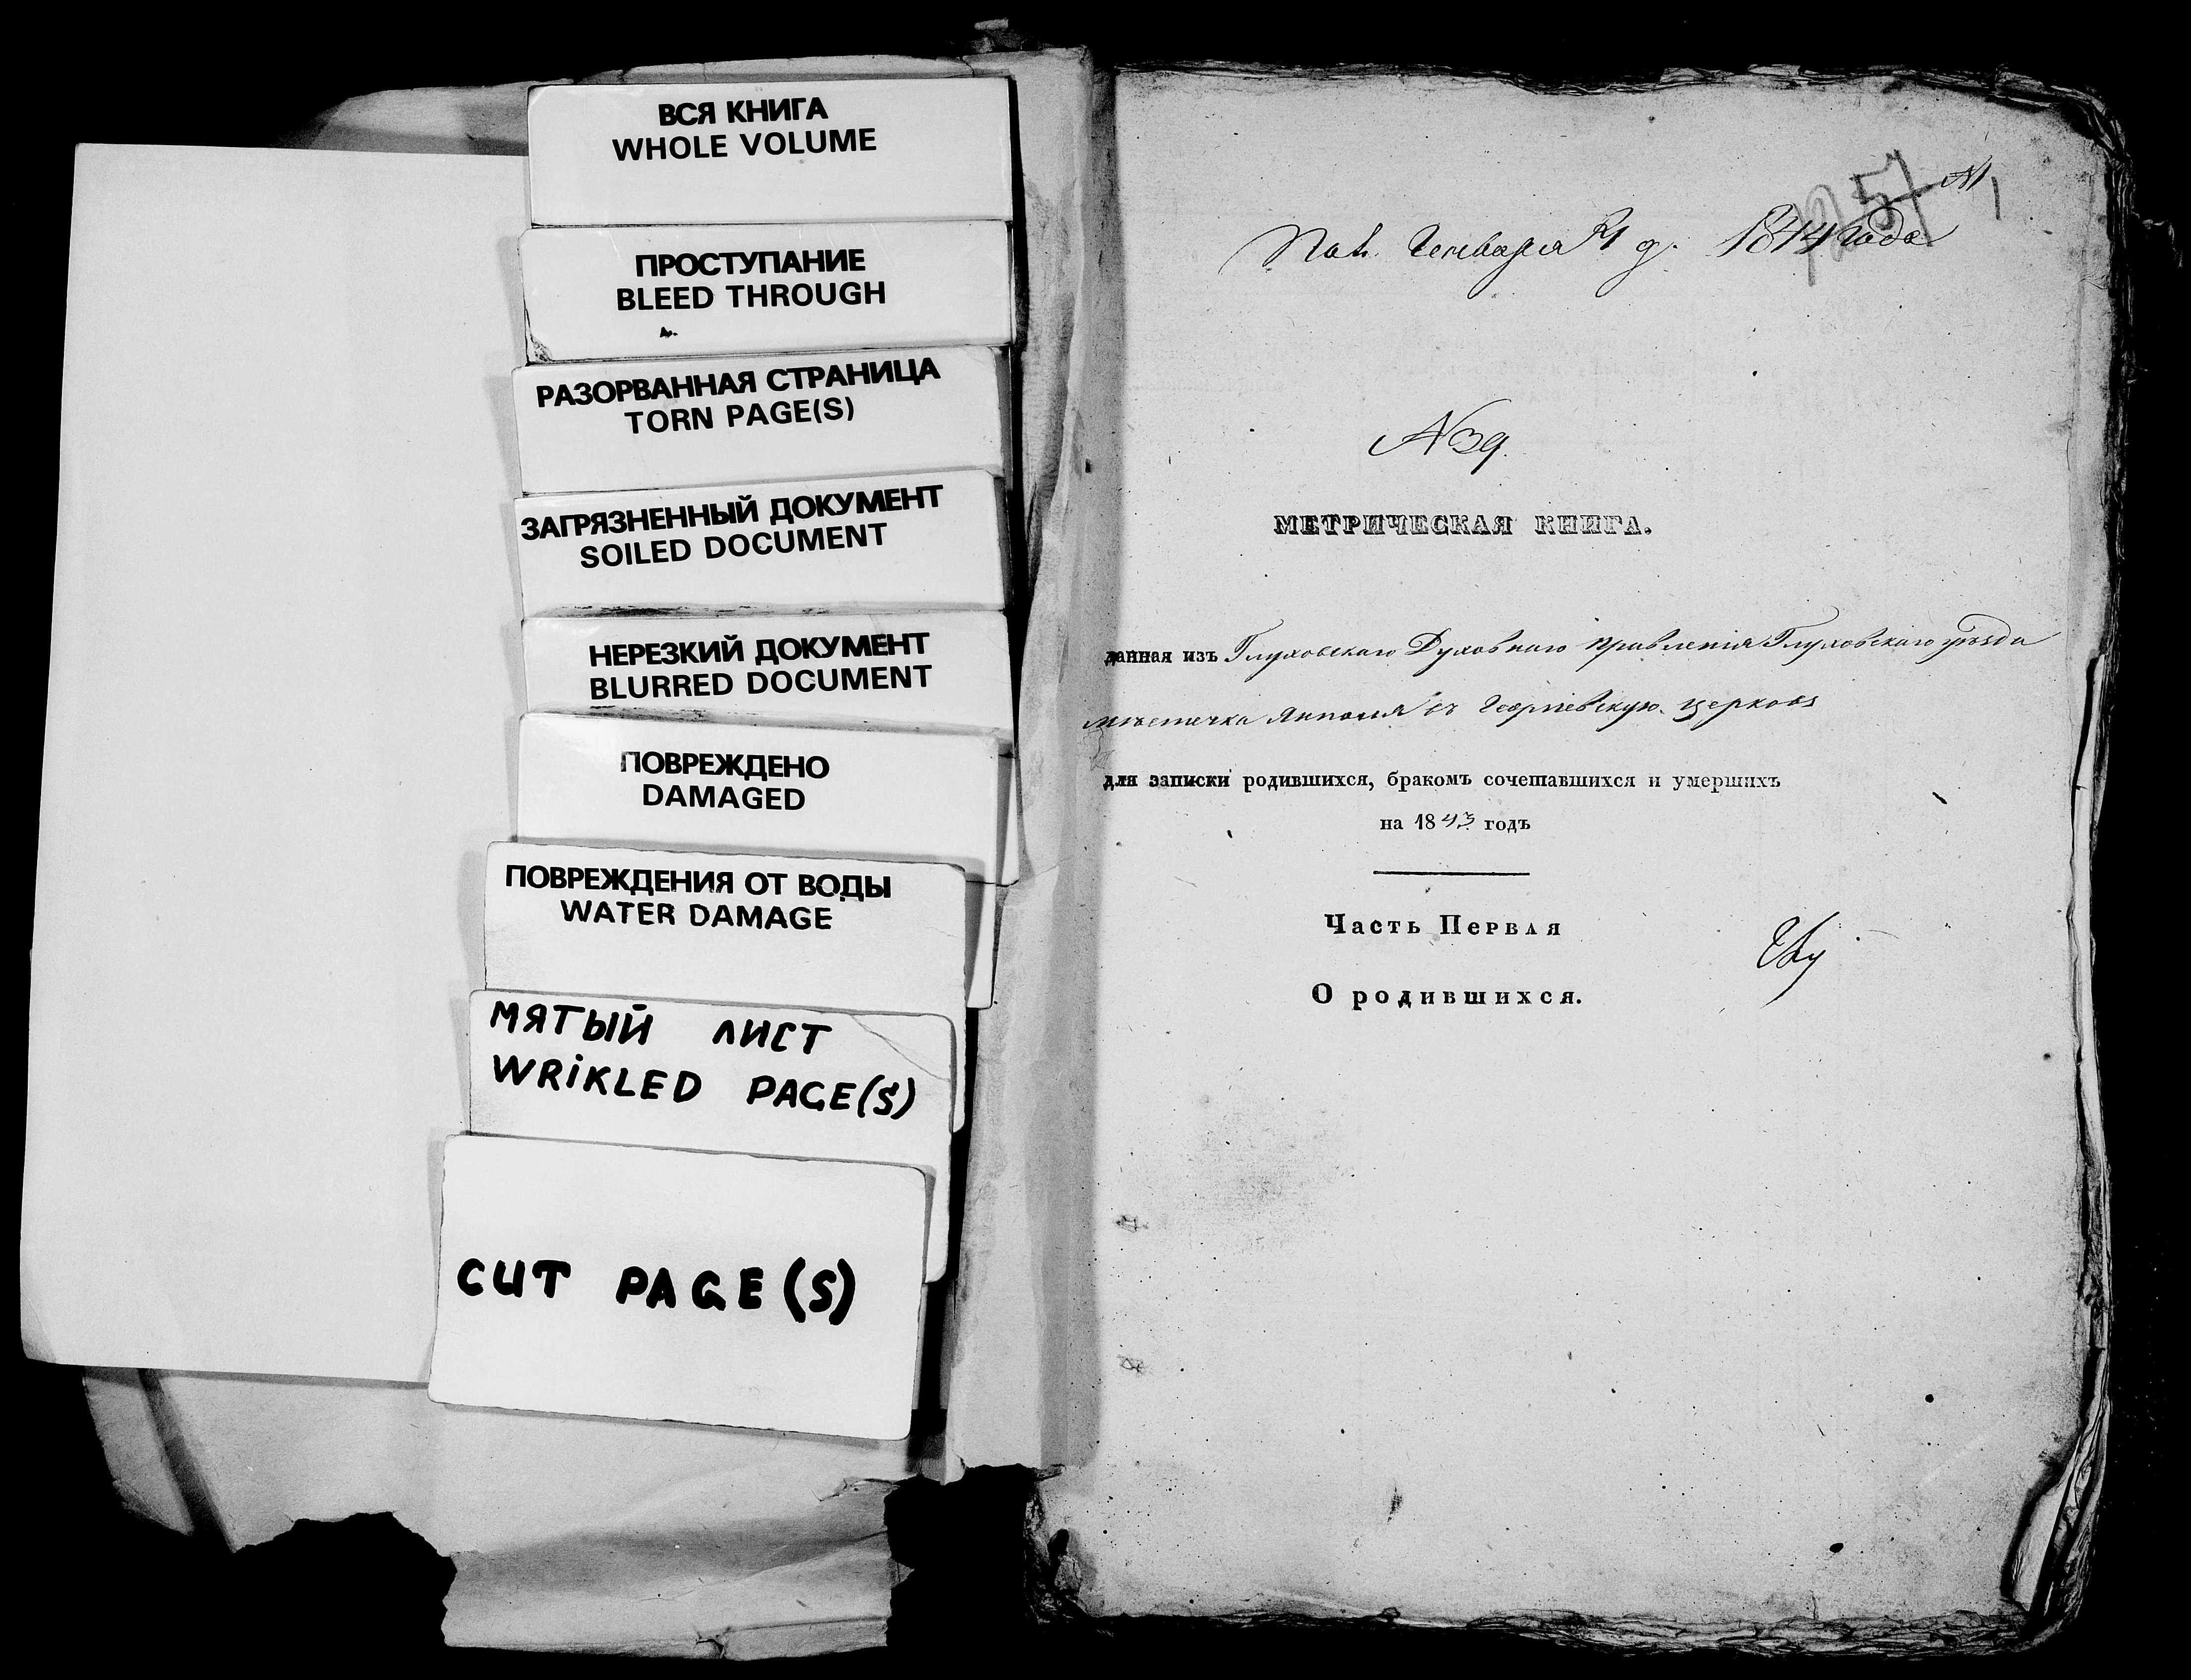 ВСЯ КНИГА
WHOLE VOLUME
ПРОСТУПАНИЕ
BLEED THROUGH
РАЗОРВАННАЯ СТРАНИЦА
TORN PAGE(S)
ЗАГРЯЗНЕННЫЙ ДОКУМЕНТ
SOILED DOCUMENT
НЕРЕЗКИЙ ДОКУМЕНТ
BLURRED DOCUMENT
ПОВРЕЖДЕНО
DAMAGED
ПОВРЕЖДЕНИЯ ОТ ВОДЫ
WATER DAMAGE
МЯТЫЙ ЛИСТ
WRiKLED PAGE(S)
CUT PAGE(S)
Генваря 21 д. 1844 года
№ 39.
МЕТРИЧЕСКАЯ КНИГА.
данная изъ Глуховскаго Духовнаго Правленія Глуховскаго уѣзда
мѣстечка Янполя въ Георгіевскую церковь
для записки родившихся, бракомъ сочетавшихся и умершихъ
на 1843 годъ
Часть Первая
О родившихся.